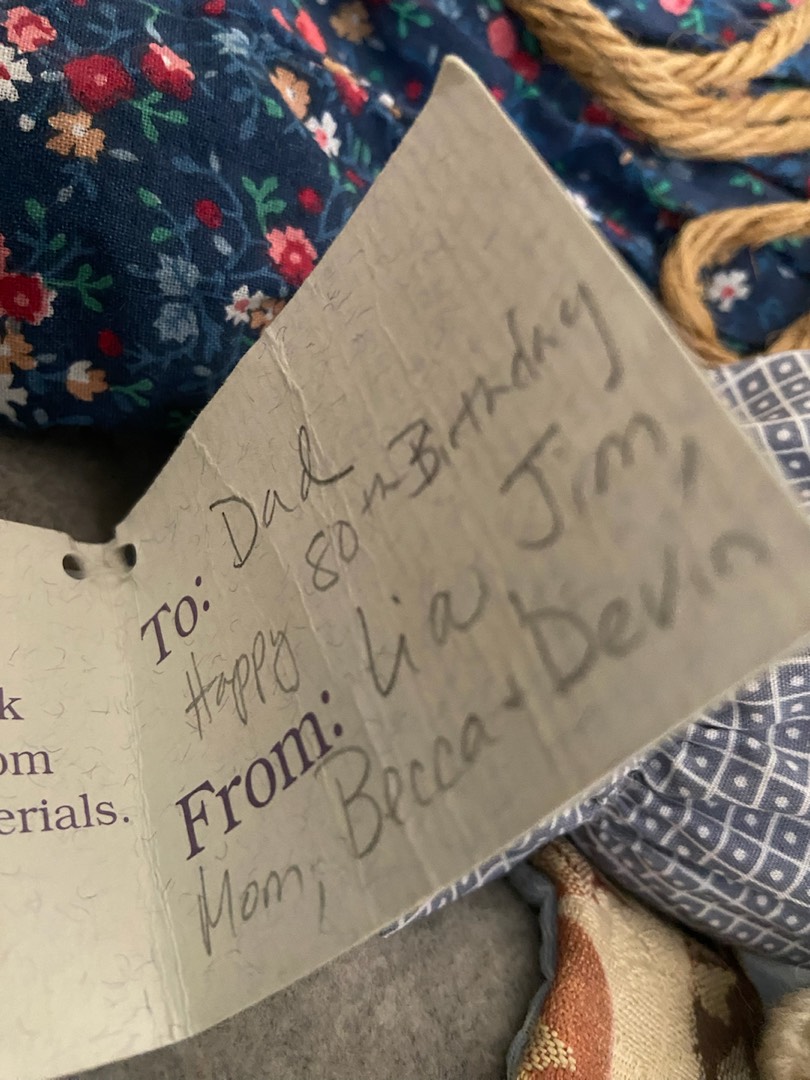 k
om
erials.
To: Dad
Happy 80th Birthday
From: Lia Jim,
Mom, Becca + Devin